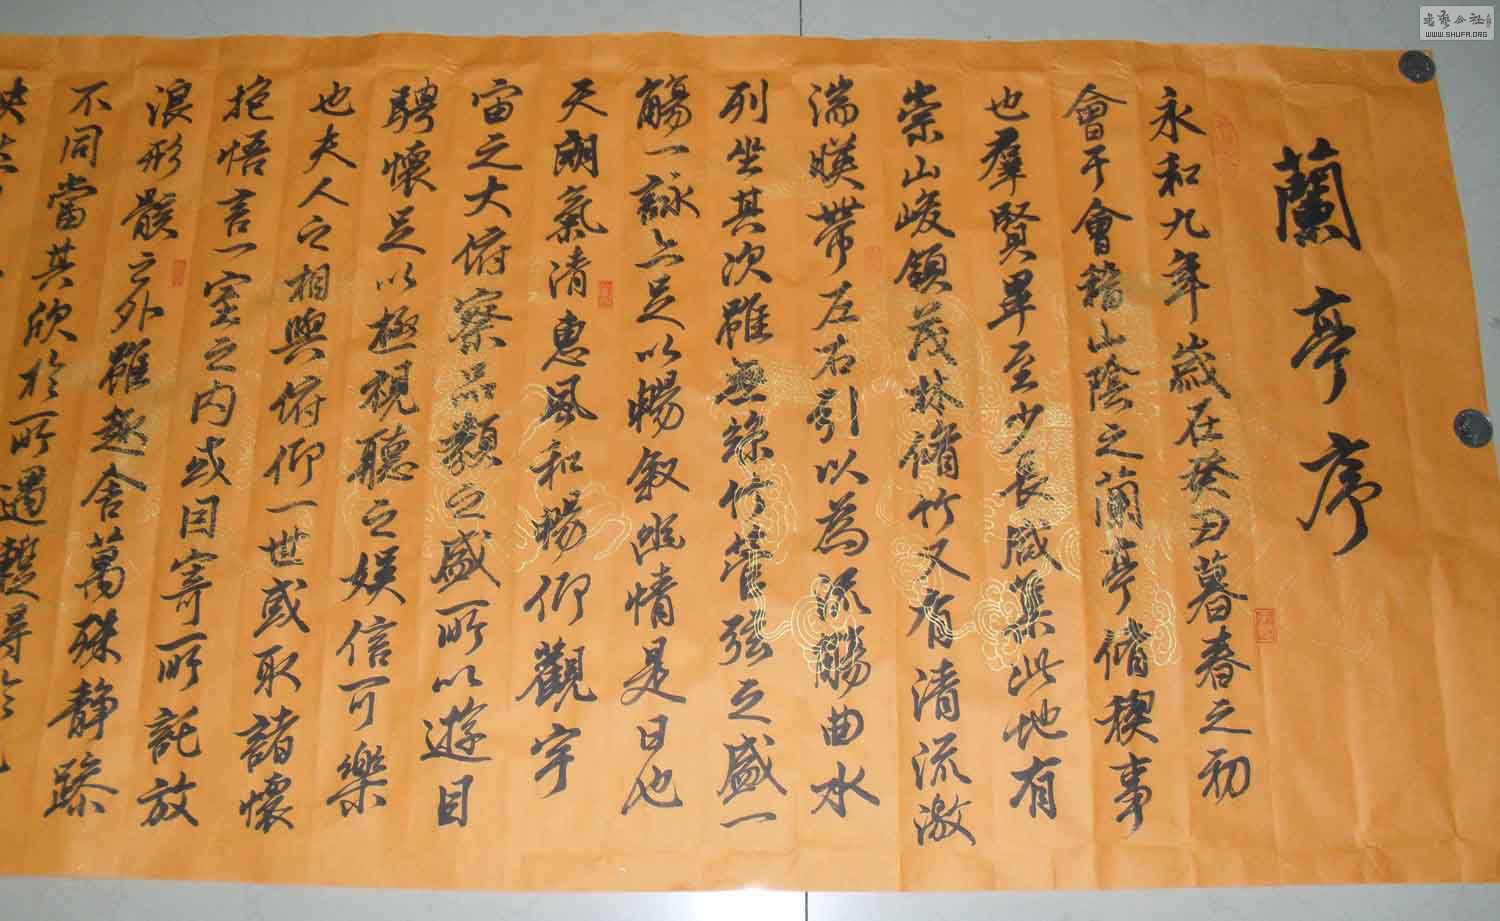 蘭亭序
永和九年歲在癸丑暮春之初
會于會稽山陰之蘭亭脩禊事
也羣賢畢至少長咸集此地有
崇山峻領茂林脩竹又有清流激
湍暎帶左右引以為流觴曲水
列坐其次雖無絲竹管弦之盛一
觴一詠亦足以暢敘幽情是日也
天朗氣清惠風和暢仰觀宇
宙之大俯察品類之盛所以遊目
騁懷足以極視聽之娛信可樂
也夫人之相與俯仰一世或取諸懷
抱悟言一室之内或因寄所託放
浪形骸之外雖趣舍萬殊靜躁
不同當其欣於所遇蹔得於
書藝公社
WWW.SHUFA.ORG